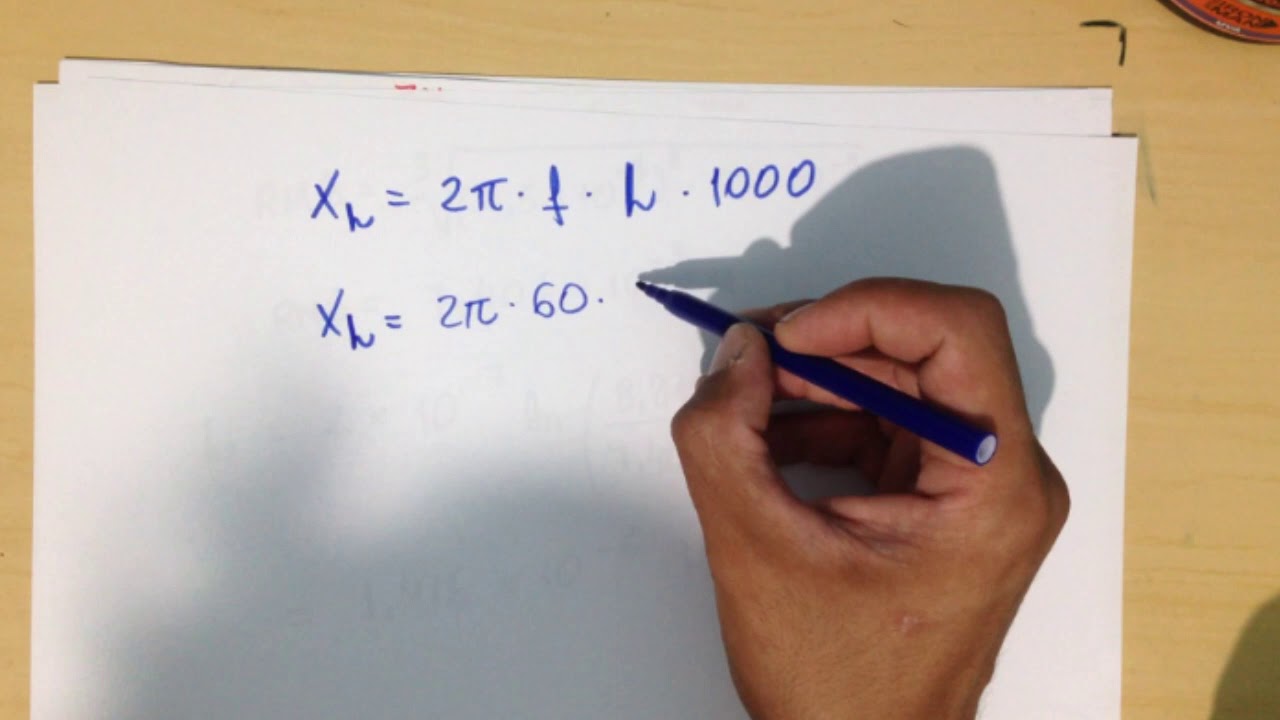 X_L = 2π · f · L · 1000
X_L = 2π · 60 ·